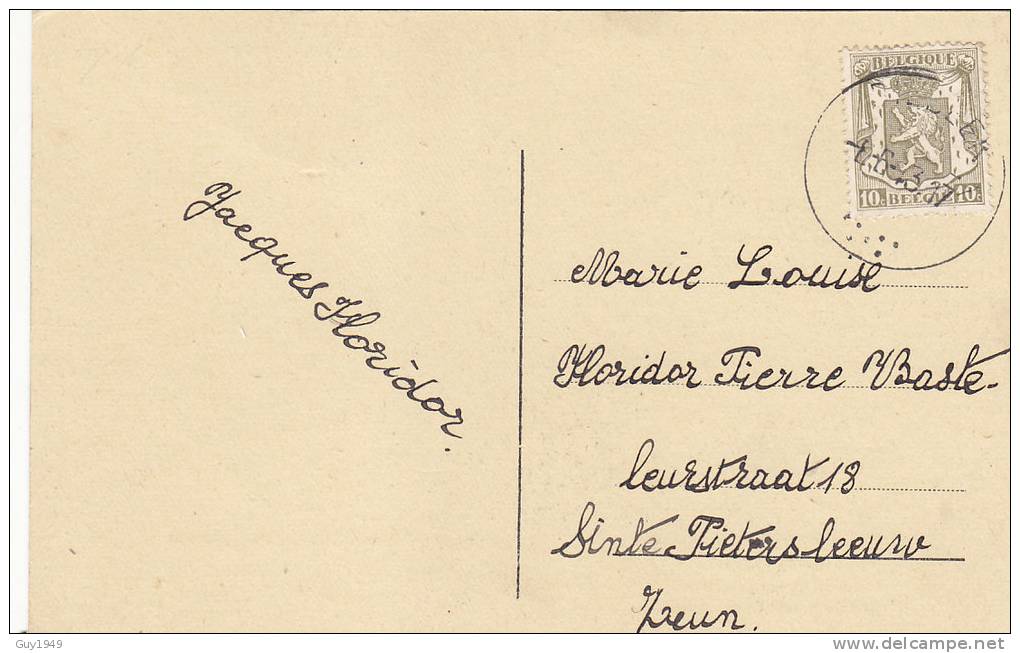 Jacques Floridor.
BELGIQUE
10c BELGIE 10c
Marie Louise
Floridor Pierre Baste-
leurstraat 18
Sinte Pieters leeuw
Zeun.
Guy1949
delcampe.net